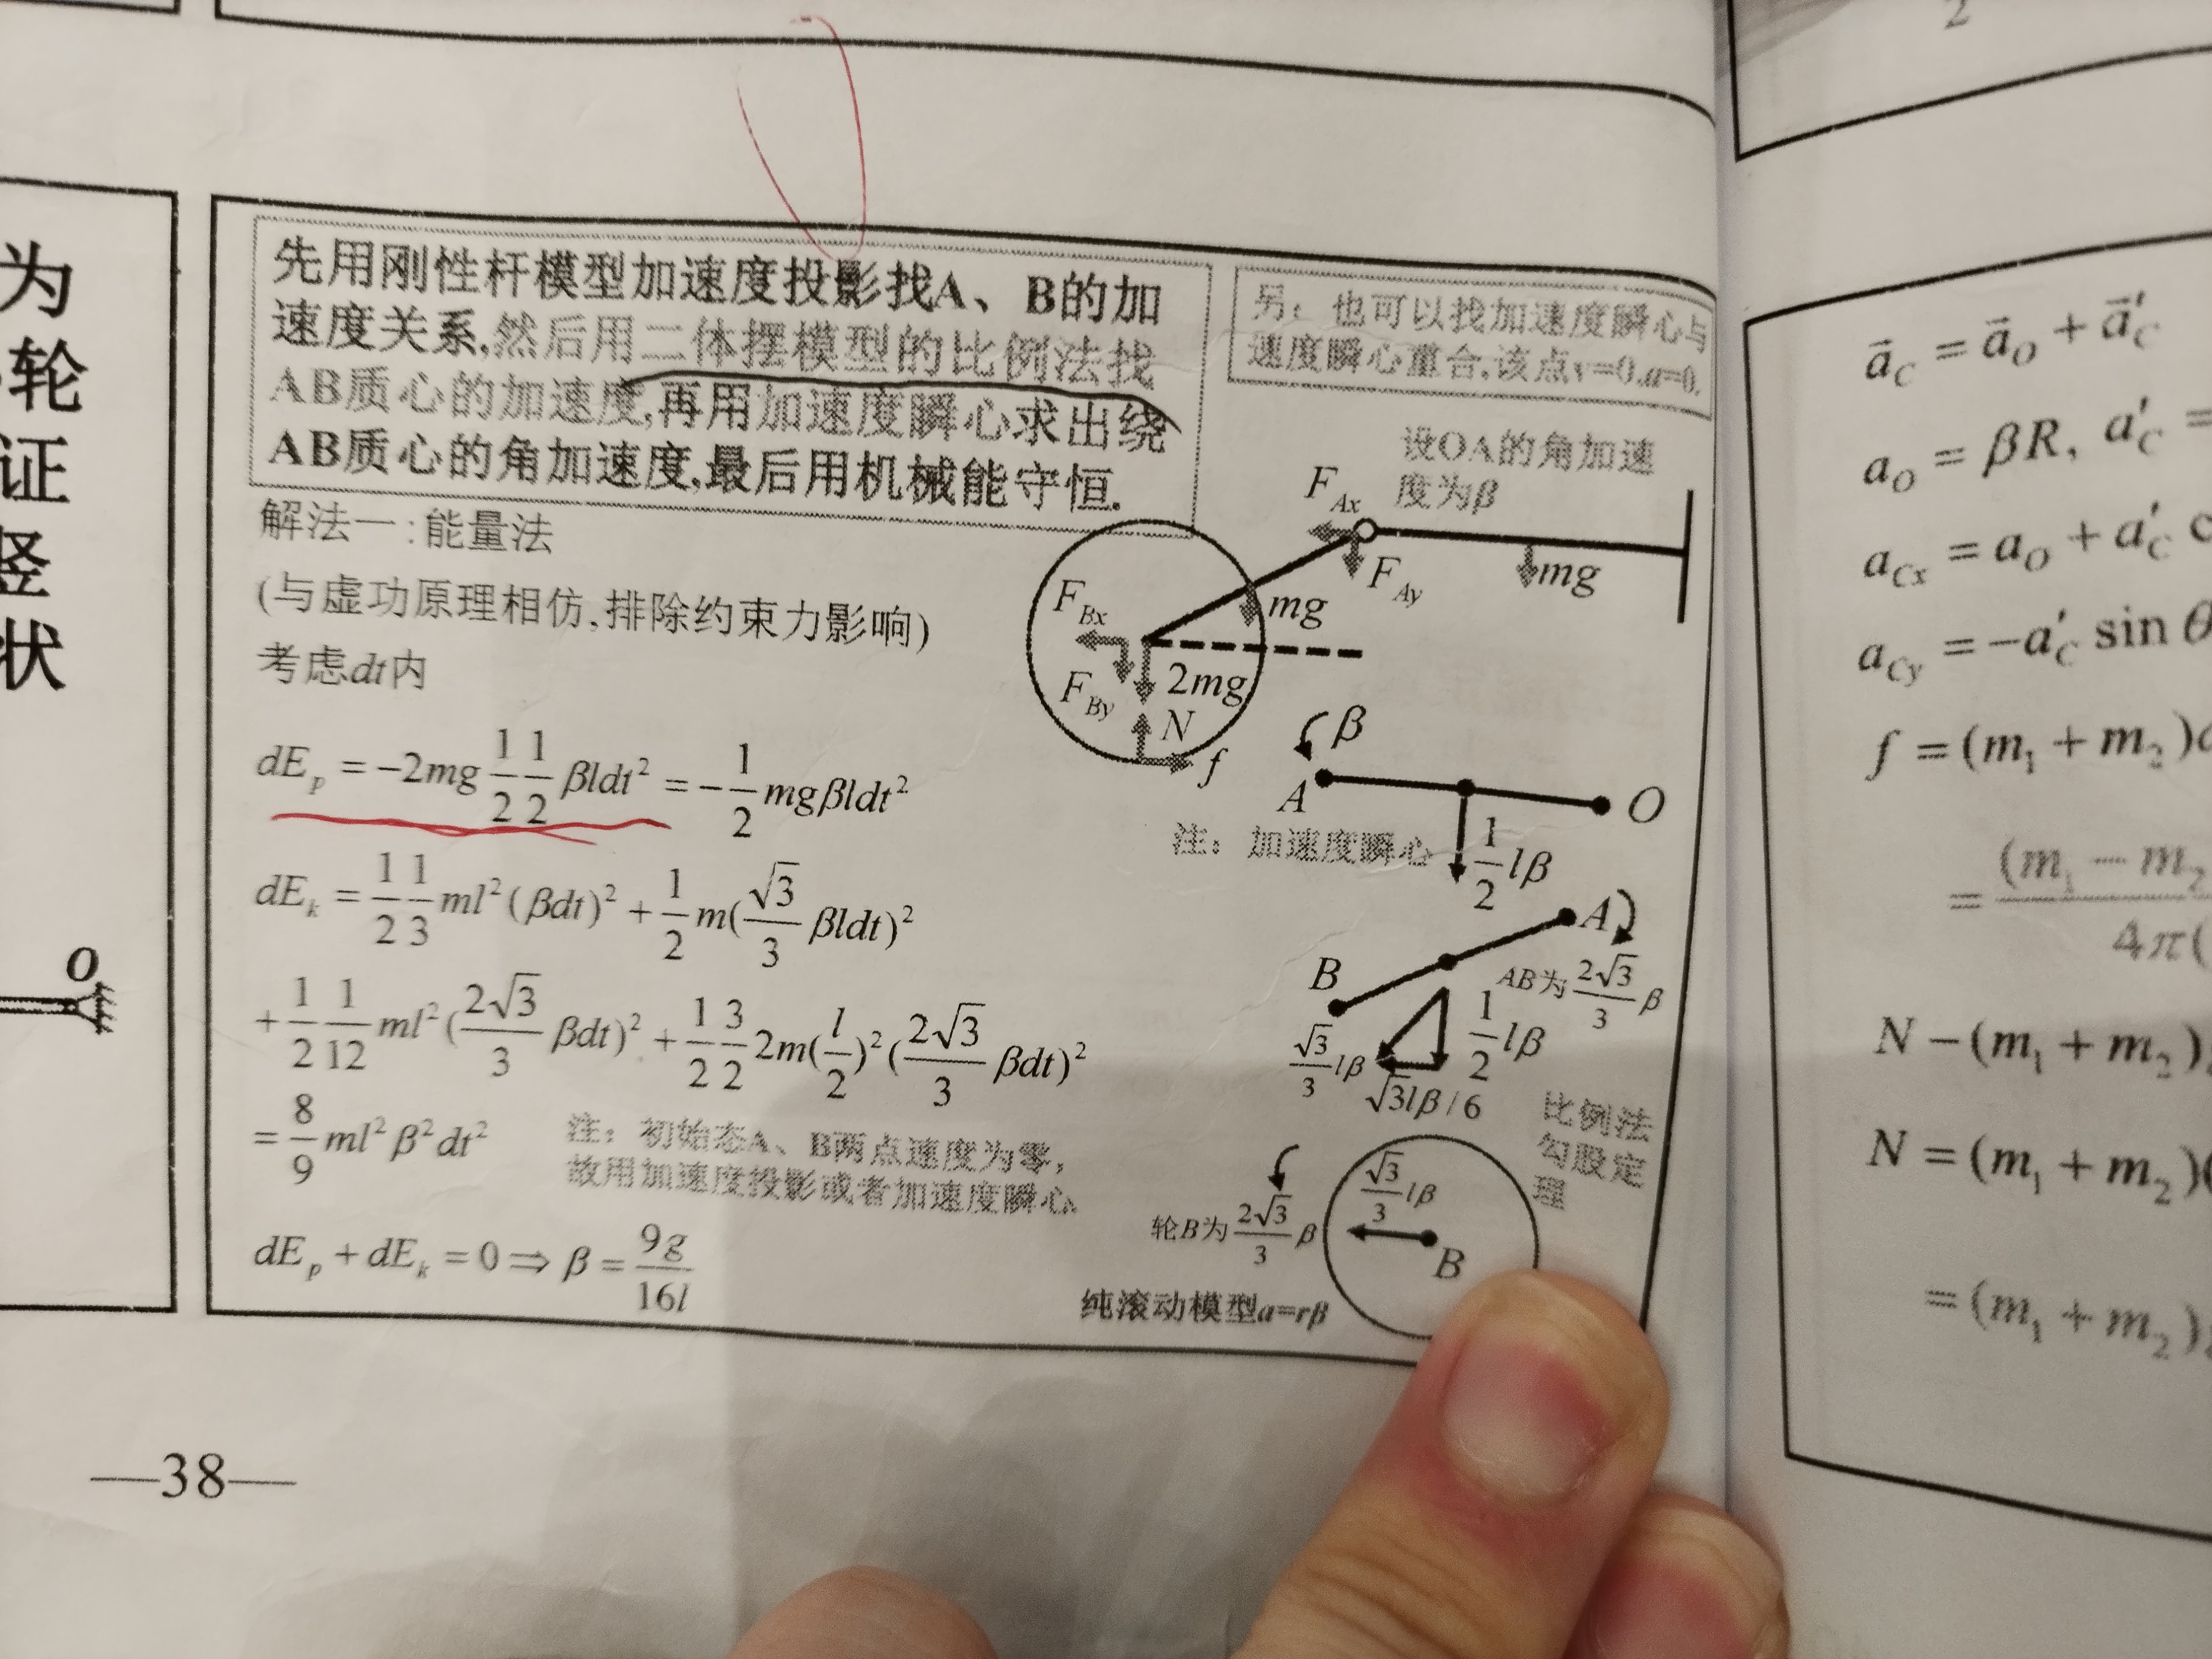 2
为
轮
证
竖
状
O
先用刚性杆模型加速度投影找A、B的加
速度关系,然后用二体摆模型的比例法找
AB质心的加速度,再用加速度瞬心求出绕
AB质心的角加速度,最后用机械能守恒.
另：也可以找加速度瞬心与
速度瞬心重合,该点v=0,a=0.
解法一:能量法
(与虚功原理相仿,排除约束力影响)
考虑dt内
dE_p = -2mg 1/2 1/2 βldt² = -1/2 mgβldt²
dE_k = 1/2 1/3 ml²(βdt)² + 1/2 m(√3/3 βldt)²
+ 1/2 1/12 ml²(2√3/3 βdt)² + 1/2 3/2 2m(l/2)²(2√3/3 βdt)²
= 8/9 ml²β²dt²
注：初始态A、B两点速度为零,
故用加速度投影或者加速度瞬心.
dE_p + dE_k = 0 ⇒ β = 9g/16l
设OA的角加速
度为β
F_Ax
F_Ay
mg
mg
F_Bx
F_By
2mg
N
f
β
A
O
1/2 lβ
注：加速度瞬心
A
B
AB为 2√3/3 β
1/2 lβ
√3/3 lβ
√3lβ/6
比例法
勾股定
理
√3/3 lβ
轮B为 2√3/3 β
B
纯滚动模型a=rβ
—38—
a⃗_C = a⃗_O + a⃗'_C
a_O = βR, a'_C =
a_Cx = a_O + a'_C c
a_Cy = -a'_C sin θ
f = (m₁ + m₂)
= (m₁ - m₂
4π(
N - (m₁ + m₂)
N = (m₁ + m₂)(
= (m₁ + m₂)